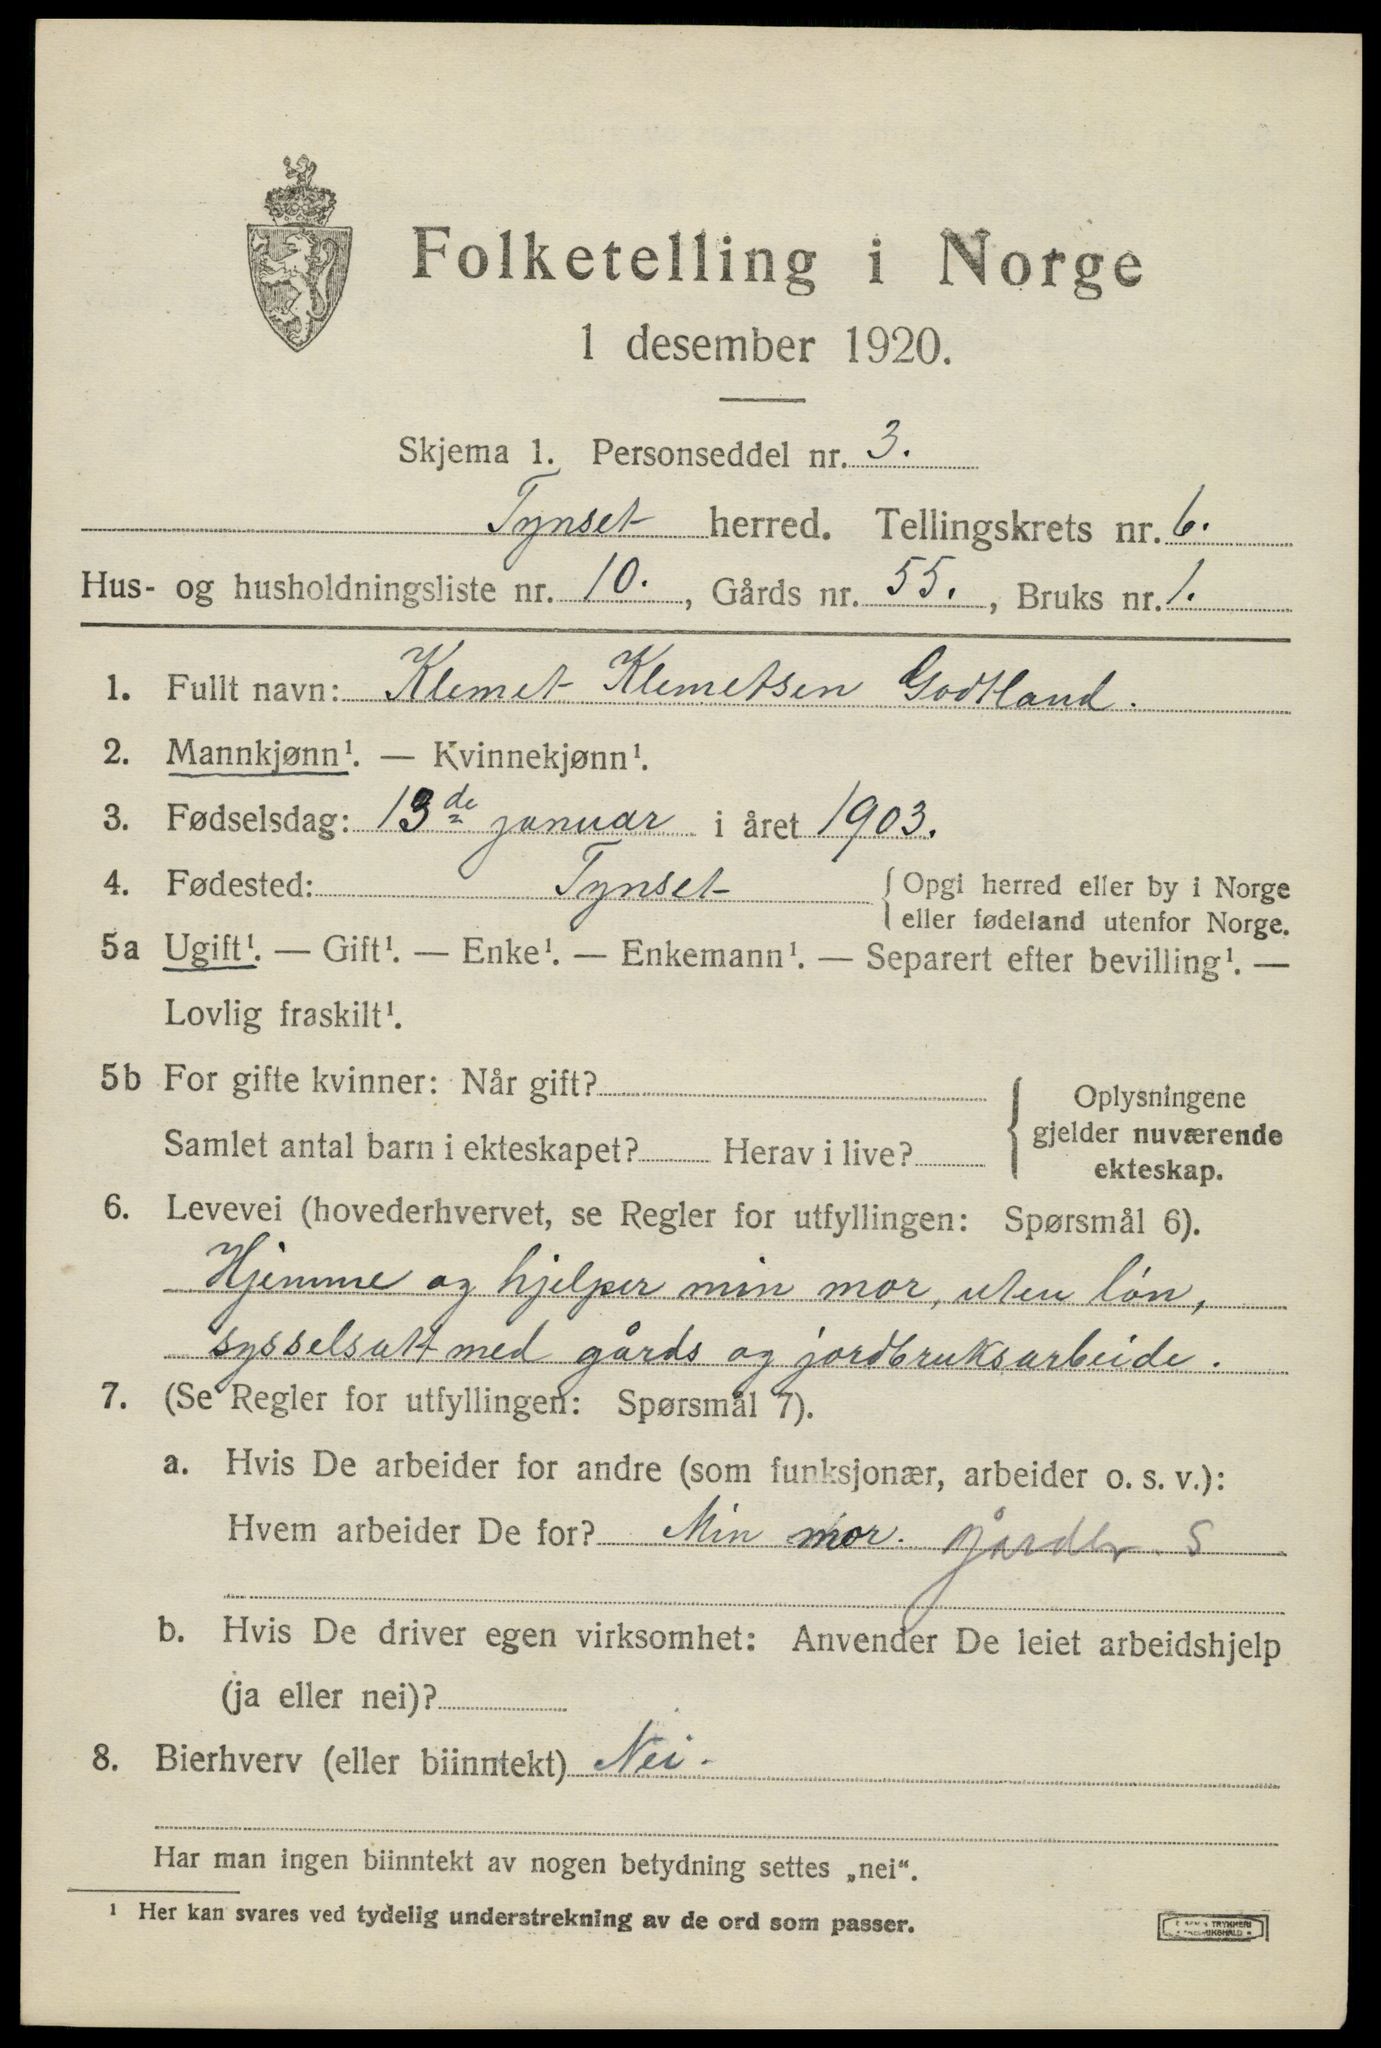 Folketelling i Norge
1 desember 1920.
Skjema 1. Personseddel nr. 3.
Tynset herred. Tellingskrets nr. 6.
Hus- og husholdningsliste nr. 10., Gårds nr. 55., Bruks nr. 1.
1. Fullt navn: Klemet Klemetsen Godtland.
2. Mannkjønn¹. — Kvinnekjønn¹.
3. Fødselsdag: 13de januar i året 1903.
4. Fødested: Tynset { Opgi herred eller by i Norge
eller fødeland utenfor Norge.
5a Ugift¹. — Gift¹. — Enke¹. — Enkemann¹. — Separert efter bevilling¹. —
Lovlig fraskilt¹.
5b For gifte kvinner: Når gift?
Samlet antal barn i ekteskapet? Herav i live?
{ Oplysningene
gjelder nuværende
ekteskap.
6. Levevei (hovederhvervet, se Regler for utfyllingen: Spørsmål 6).
Hjemme og hjelper min mor, uten løn,
sysselsatt med gårds og jordbruksarbeide.
7. (Se Regler for utfyllingen: Spørsmål 7).
a. Hvis De arbeider for andre (som funksjonær, arbeider o. s. v.):
Hvem arbeider De for? Min mor. gårdbr. S
b. Hvis De driver egen virksomhet: Anvender De leiet arbeidshjelp
(ja eller nei)?
8. Bierhverv (eller biinntekt) Nei.
Har man ingen biinntekt av nogen betydning settes „nei“.
¹ Her kan svares ved tydelig understrekning av de ord som passer.
TRYKKERI